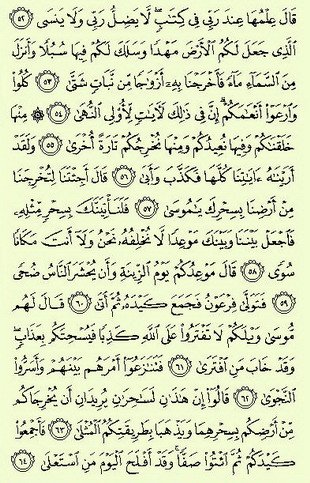 قَالَ عِلْمُهَا عِندَ رَبِّى فِى كِتَٰبٍ ۖ لَّا يَضِلُّ رَبِّى وَلَا يَنسَى ﴿٥٢﴾
ٱلَّذِى جَعَلَ لَكُمُ ٱلْأَرْضَ مَهْدًا وَسَلَكَ لَكُمْ فِيهَا سُبُلًا وَأَنزَلَ
مِنَ ٱلسَّمَآءِ مَآءً فَأَخْرَجْنَا بِهِۦٓ أَزْوَٰجًا مِّن نَّبَاتٍ شَتَّىٰ ﴿٥٣﴾ كُلُوا۟
وَٱرْعَوْا۟ أَنْعَٰمَكُمْ ۗ إِنَّ فِى ذَٰلِكَ لَءَايَٰتٍ لِّأُو۟لِى ٱلنُّهَىٰ ﴿٥٤﴾ ۞ مِنْهَا
خَلَقْنَٰكُمْ وَفِيهَا نُعِيدُكُمْ وَمِنْهَا نُخْرِجُكُمْ تَارَةً أُخْرَىٰ ﴿٥٥﴾ وَلَقَدْ
أَرَيْنَٰهُ ءَايَٰتِنَا كُلَّهَا فَكَذَّبَ وَأَبَىٰ ﴿٥٦﴾ قَالَ أَجِئْتَنَا لِتُخْرِجَنَا
مِنْ أَرْضِنَا بِسِحْرِكَ يَٰمُوسَىٰ ﴿٥٧﴾ فَلَنَأْتِيَنَّكَ بِسِحْرٍ مِّثْلِهِۦ
فَٱجْعَلْ بَيْنَنَا وَبَيْنَكَ مَوْعِدًا لَّا نُخْلِفُهُۥ نَحْنُ وَلَآ أَنتَ مَكَانًا
سُوًى ﴿٥٨﴾ قَالَ مَوْعِدُكُمْ يَوْمُ ٱلزِّينَةِ وَأَن يُحْشَرَ ٱلنَّاسُ ضُحًى
﴿٥٩﴾ فَتَوَلَّىٰ فِرْعَوْنُ فَجَمَعَ كَيْدَهُۥ ثُمَّ أَتَىٰ ﴿٦٠﴾ قَالَ لَهُم
مُّوسَىٰ وَيْلَكُمْ لَا تَفْتَرُوا۟ عَلَى ٱللَّهِ كَذِبًا فَيُسْحِتَكُم بِعَذَابٍ ۖ
وَقَدْ خَابَ مَنِ ٱفْتَرَىٰ ﴿٦١﴾ فَتَنَٰزَعُوٓا۟ أَمْرَهُم بَيْنَهُمْ وَأَسَرُّوا۟
ٱلنَّجْوَىٰ ﴿٦٢﴾ قَالُوٓا۟ إِنْ هَٰذَٰنِ لَسَٰحِرَٰنِ يُرِيدَانِ أَن يُخْرِجَاكُم
مِّنْ أَرْضِكُم بِسِحْرِهِمَا وَيَذْهَبَا بِطَرِيقَتِكُمُ ٱلْمُثْلَىٰ ﴿٦٣﴾ فَأَجْمِعُوا۟
كَيْدَكُمْ ثُمَّ ٱئْتُوا۟ صَفًّا ۚ وَقَدْ أَفْلَحَ ٱلْيَوْمَ مَنِ ٱسْتَعْلَىٰ ﴿٦٤﴾